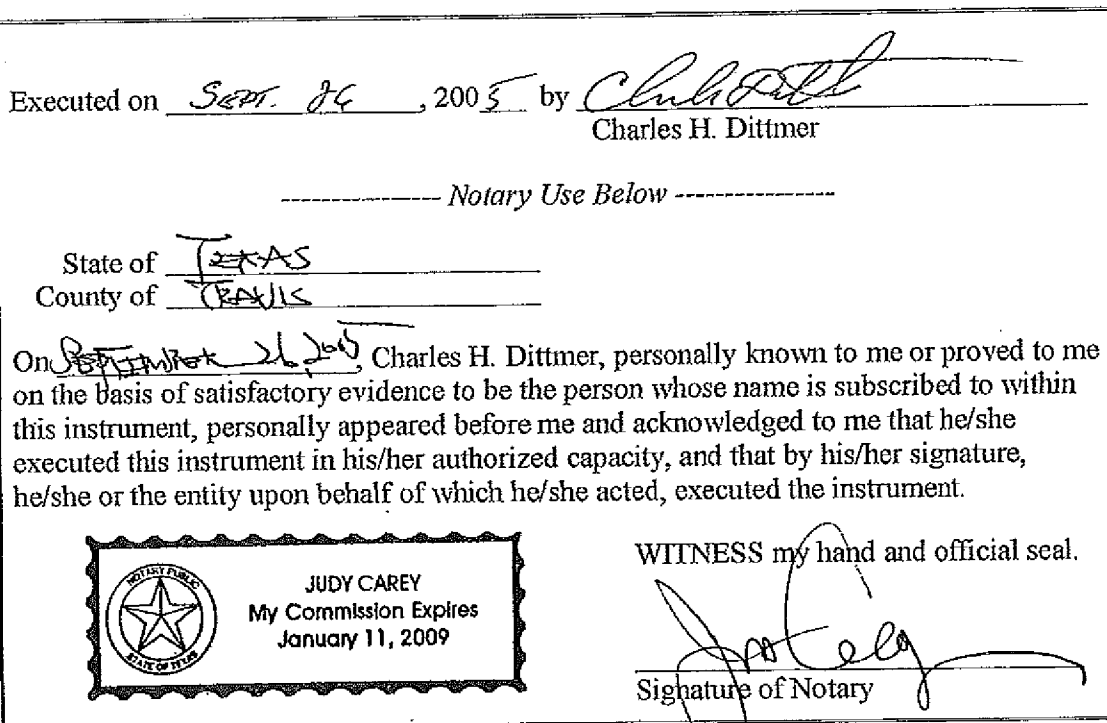 Executed on SEPT. 26, 2005 by
Charles H. Dittmer
---------------- Notary Use Below ----------------
State of TEXAS
County of TRAVIS
On SEPTEMBER 26, 2005, Charles H. Dittmer, personally known to me or proved to me
on the basis of satisfactory evidence to be the person whose name is subscribed to within
this instrument, personally appeared before me and acknowledged to me that he/she
executed this instrument in his/her authorized capacity, and that by his/her signature,
he/she or the entity upon behalf of which he/she acted, executed the instrument.
NOTARY PUBLIC
STATE OF TEXAS
JUDY CAREY
My Commission Expires
January 11, 2009
WITNESS my hand and official seal.
Signature of Notary